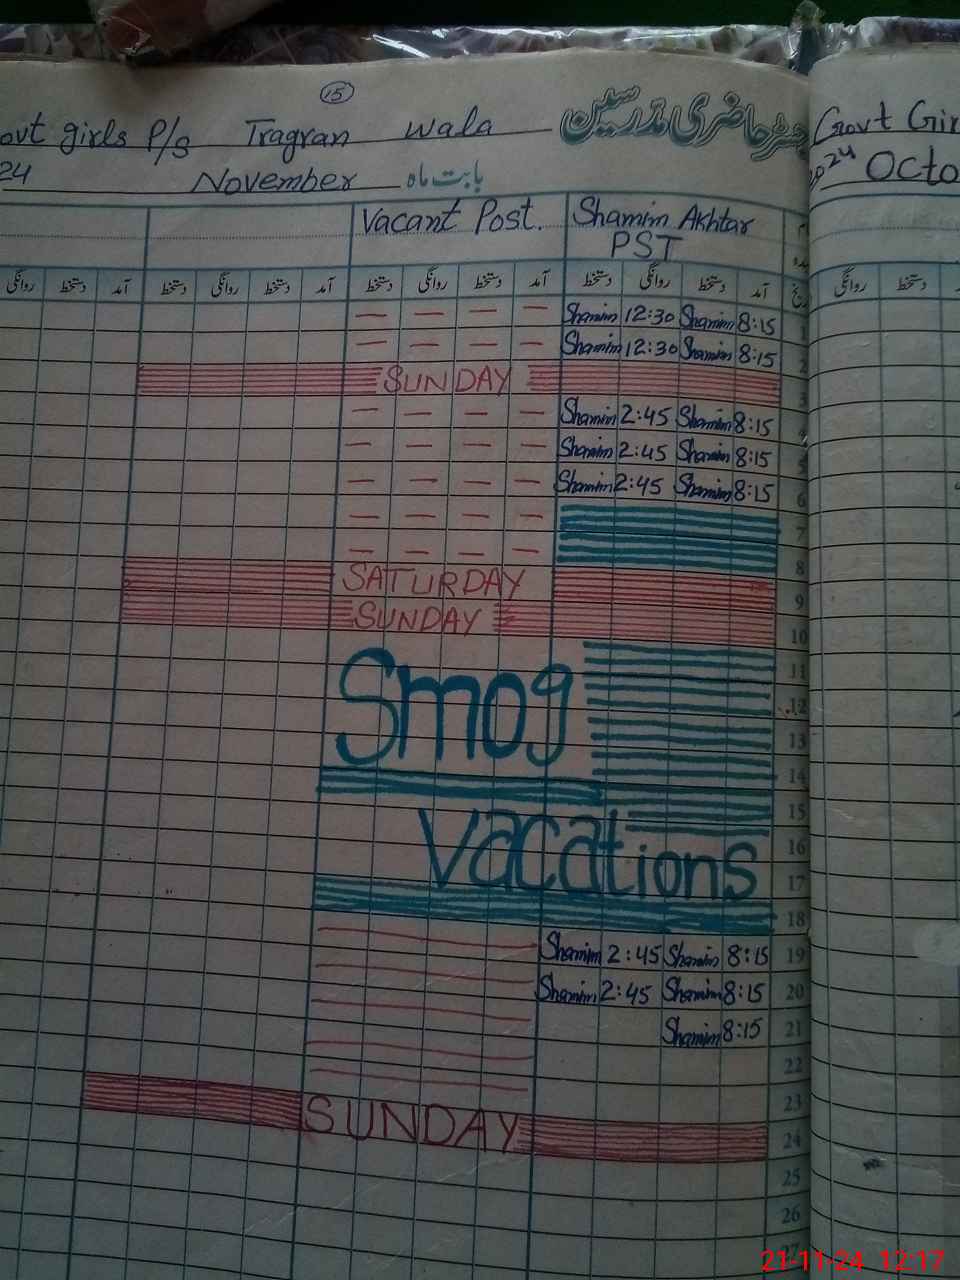 15
ovt girls P/s Tragran wala رجسٹر حاضری مدرسین
24 November بابت ماہ
Vacant Post. Shamim Akhtar
PST
روانگی دستخط آمد دستخط روانگی دستخط آمد دستخط روانگی دستخط آمد دستخط روانگی دستخط آمد
— — — — Shamim 12:30 Shamim 8:15 1
— — — — Shamim 12:30 Shamim 8:15 2
SUNDAY 3
— — — — Shamim 2:45 Shamim 8:15 4
— — — — Shamim 2:45 Shamim 8:15 5
— — — — Shamim 2:45 Shamim 8:15 6
— — — — 7
— — — — 8
SATURDAY 9
SUNDAY 10
11
Smog 12
13
14
15
Vacations 16
17
18
Shamim 2:45 Shamim 8:15 19
Shamim 2:45 Shamim 8:15 20
Shamim 8:15 21
22
23
SUNDAY 24
25
26
27
Govt Gir
2024 Octo
روانگی دستخط
21-11-24 12:17